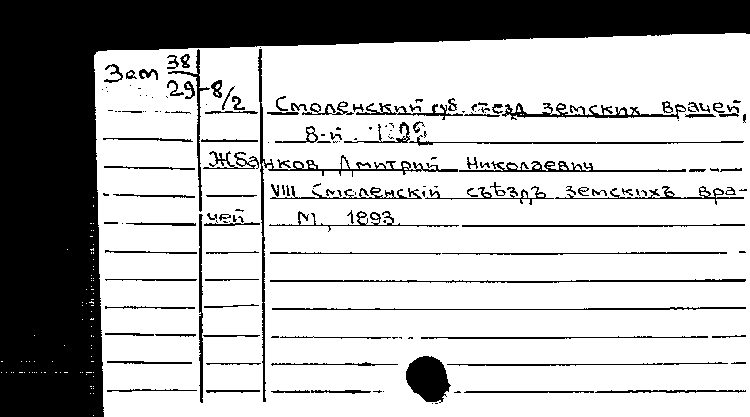 Зет 38
29-8/2
Смоленский губ. съезд земских врачей,
8-й.
Жбанков, Дмитрий Николаевич
VIII Смоленскій съѣздъ земскихъ вра-
чей М., 1893.